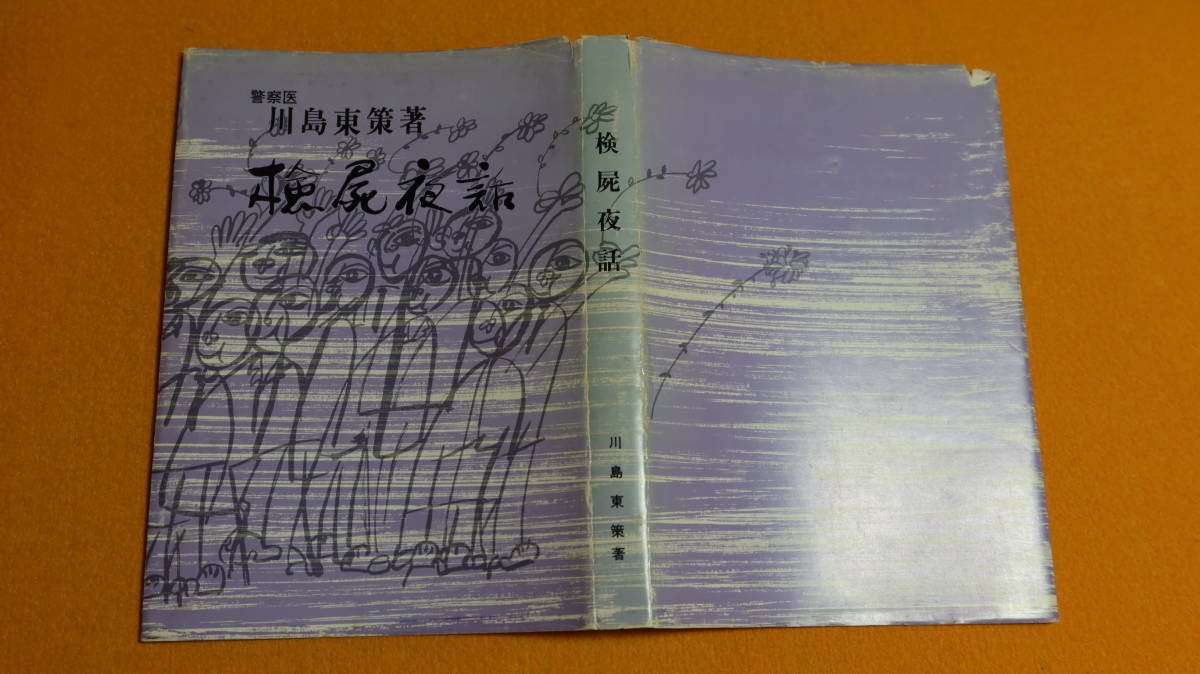 警察医
川島東策著
検屍夜話
検屍夜話
川島東策著